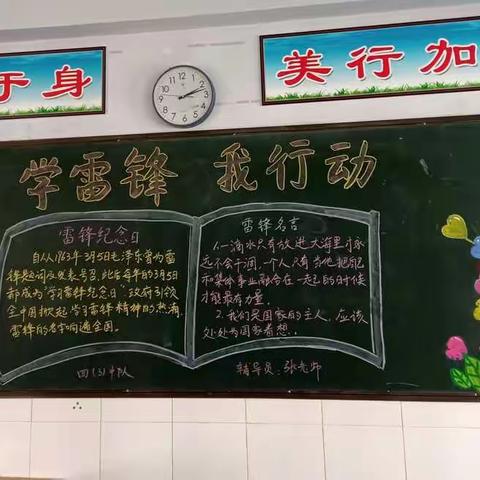 于身
美行加
学雷锋 我行动
雷锋纪念日
自从1963年3月5日毛泽东曾为雷
锋题词及发表号召，此后每年的3月5日
都成为"学习雷锋纪念日"政府引领
全中国掀起学习雷锋精神的热潮，
雷锋的名字响遍全国。
四（3）中队
雷锋名言
1.一滴水只有放进大海里才永
远不会干涸，一个人只有当他把自己
和集体事业融合在一起的时候
才能最有力量。
2.我们是国家的主人，应该
处处为国家着想。
辅导员：张老师